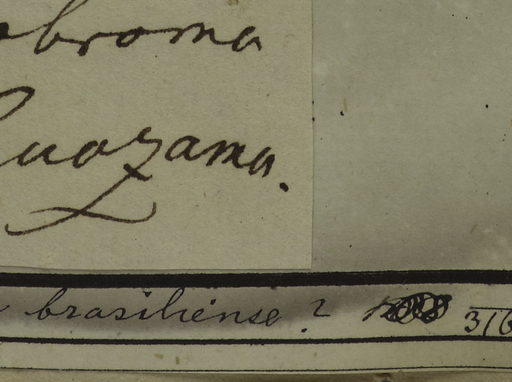 obroma
Guazama.
brasiliense? 316